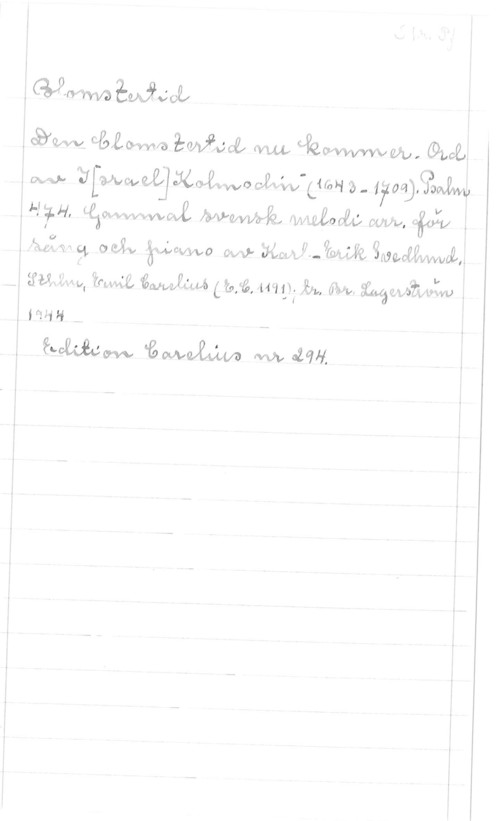 Blomstertid
Den blomstertid nu kommer. Ord
av I[srael] Kolmodin (1643-1709). Psalm
474. Gammal svensk melodi arr. för
sång och piano av Karl-Erik Svedlund.
Sthlm, Emil Carelius (E.C. 1191); tr. Br. Lagerström
1944
Edition Carelius nr 294.